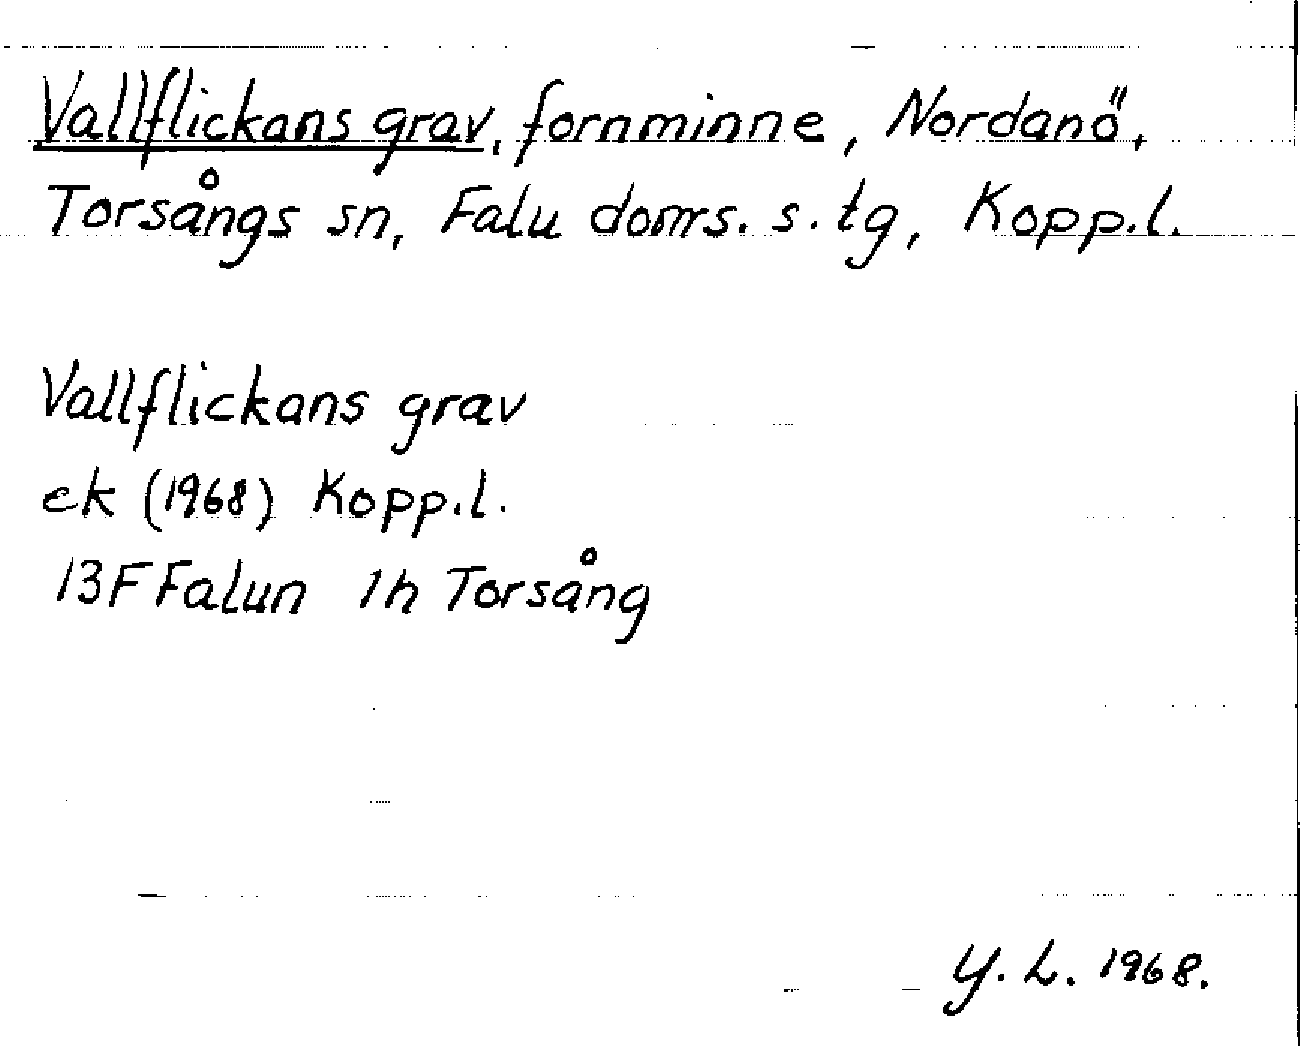 Vallflickans grav, fornminne, Nordanö,
Torsångs sn, Falu doms. s. tg, Kopp.l.
Vallflickans grav
ek (1968) Kopp.l.
13F Falun 1h Torsång
Y. L. 1968.